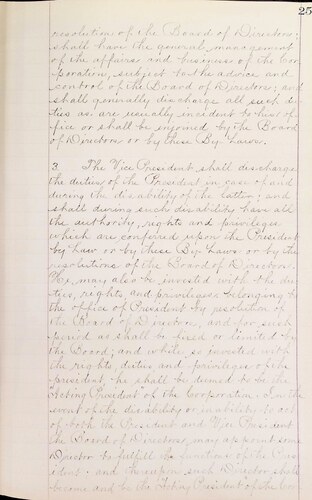 25
resolution of the Board of Directors;
shall have the general management
of the affairs and business of the Cor-
poration, subject to the advice and
control of the Board of Directors; and
shall generally discharge all such du-
ties as are usually incident to his of-
fice or shall be enjoined by the Board
of Directors or by these By-Laws.
3. The Vice President shall discharge
the duties of the President in case of and
during the disability of the latter; and
shall during such disability have all
the authority, rights and privileges
which are conferred upon the President
by Law or by these By-Laws or by the
resolutions of the Board of Directors.
He may also be invested with the du-
ties, rights and privileges belonging to
the office of President by resolution of
the Board of Directors, and for such
period as shall be fixed or limited by
the Board; and while so invested with
the rights, duties and privileges of the
president, he shall be deemed to be the
"Acting President" of the Corporation. In the
event of the disability or inability to act
of both the President and Vice President
the Board of Directors, may appoint some
Director to fulfill the functions of the Pres-
ident; and thereupon such Director shall
become and be the "Acting President of the Cor-